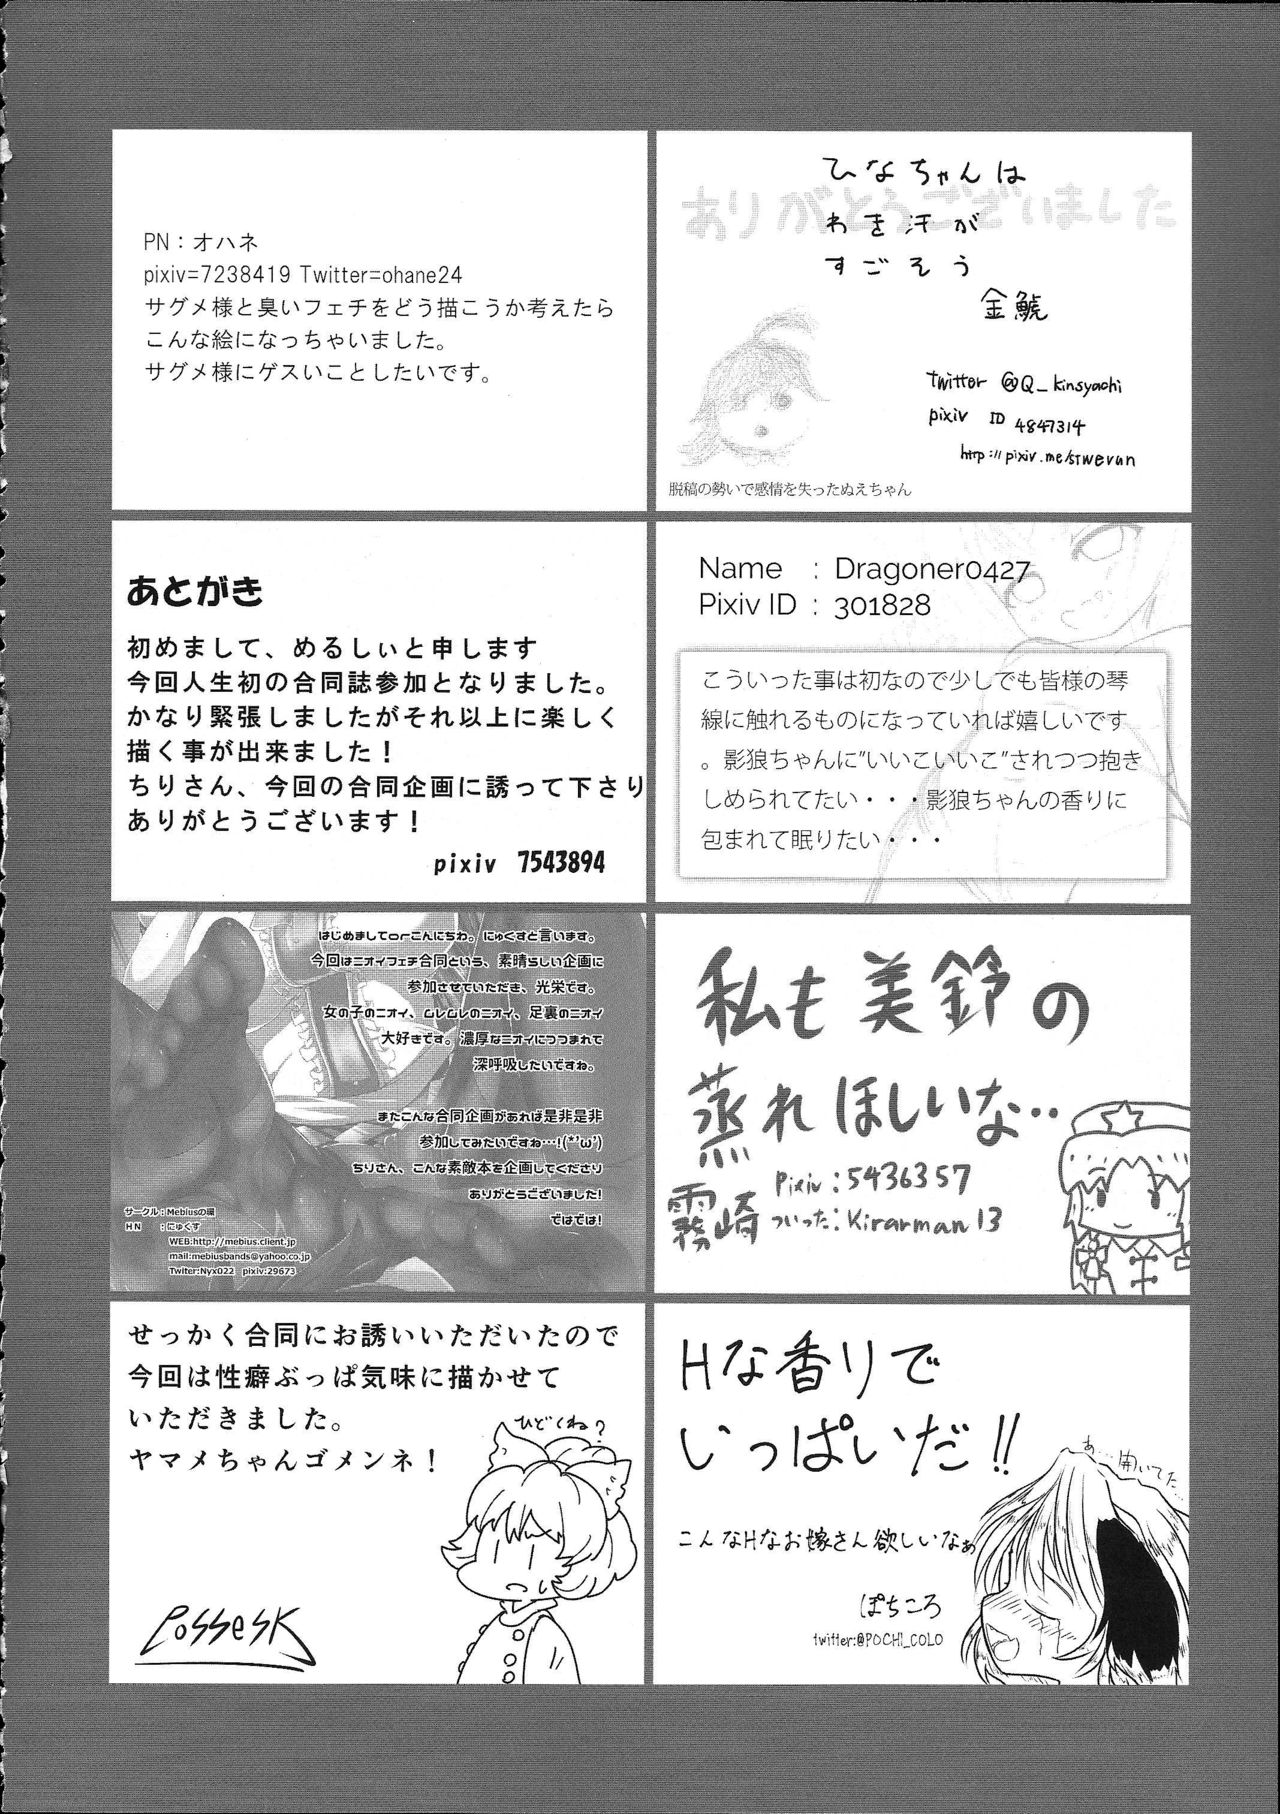 PN：オハネ
pixiv=7238419 Twitter=ohane24
サグメ様と臭いフェチをどう描こうか考えたら
こんな絵になっちゃいました。
サグメ様にゲスいことしたいです。
ありがとうございました
ひなちゃんは
わき汗が
すごそう
金鯱
twitter @Q_kinsyachi
pixiv ID 4847314
http://pixiv.me/stwevun
脱稿の勢いで感情を失ったぬえちゃん
あとがき
初めまして、めるしぃと申します
今回人生初の合同誌参加となりました。
かなり緊張しましたがそれ以上に楽しく
描く事が出来ました！
ちりさん、今回の合同企画に誘って下さり
ありがとうございます！
pixiv 7543894
Name : Dragoner0427
Pixiv ID : 301828
こういった事は初なので少しでも皆様の琴
線に触れるものになっていれば嬉しいです
。影狼ちゃんに"いいこいいこ"されつつ抱き
しめられてたい・・・影狼ちゃんの香りに
包まれて眠りたい・・・
はじめましてorこんにちわ。にゅくすと言います。
今回はニオイフェチ合同という、素晴らしい企画に
参加させていただき、光栄です。
女の子のニオイ、ムレムレのニオイ、足裏のニオイ
大好きです。濃厚なニオイにつつまれて
深呼吸したいですね。
またこんな合同企画があれば是非是非
参加してみたいですね…!(*'ω')
ちりさん、こんな素敵本を企画してくださり
ありがとうございました!
ではでは!
サークル：Mebiusの環
HN ：にゅくす
WEB:http://mebius.client.jp
mail:mebiusbands@yahoo.co.jp
Twiter:Nyx022 pixiv:29673
私も美鈴の
蒸れほしいな..
霧崎
Pixiv：5436357
ついった：Kirarman13
せっかく合同にお誘いいただいたので
今回は性癖ぶっぱ気味に描かせて
いただきました。
ヤマメちゃんゴメンネ！
ひどくね？
PossesK
Hな香りで
いっぱいだ!!
あ…開いてた…
こんなHなお嫁さん欲しいなぁ
ぽちころ
twitter:@POCHI_COLO